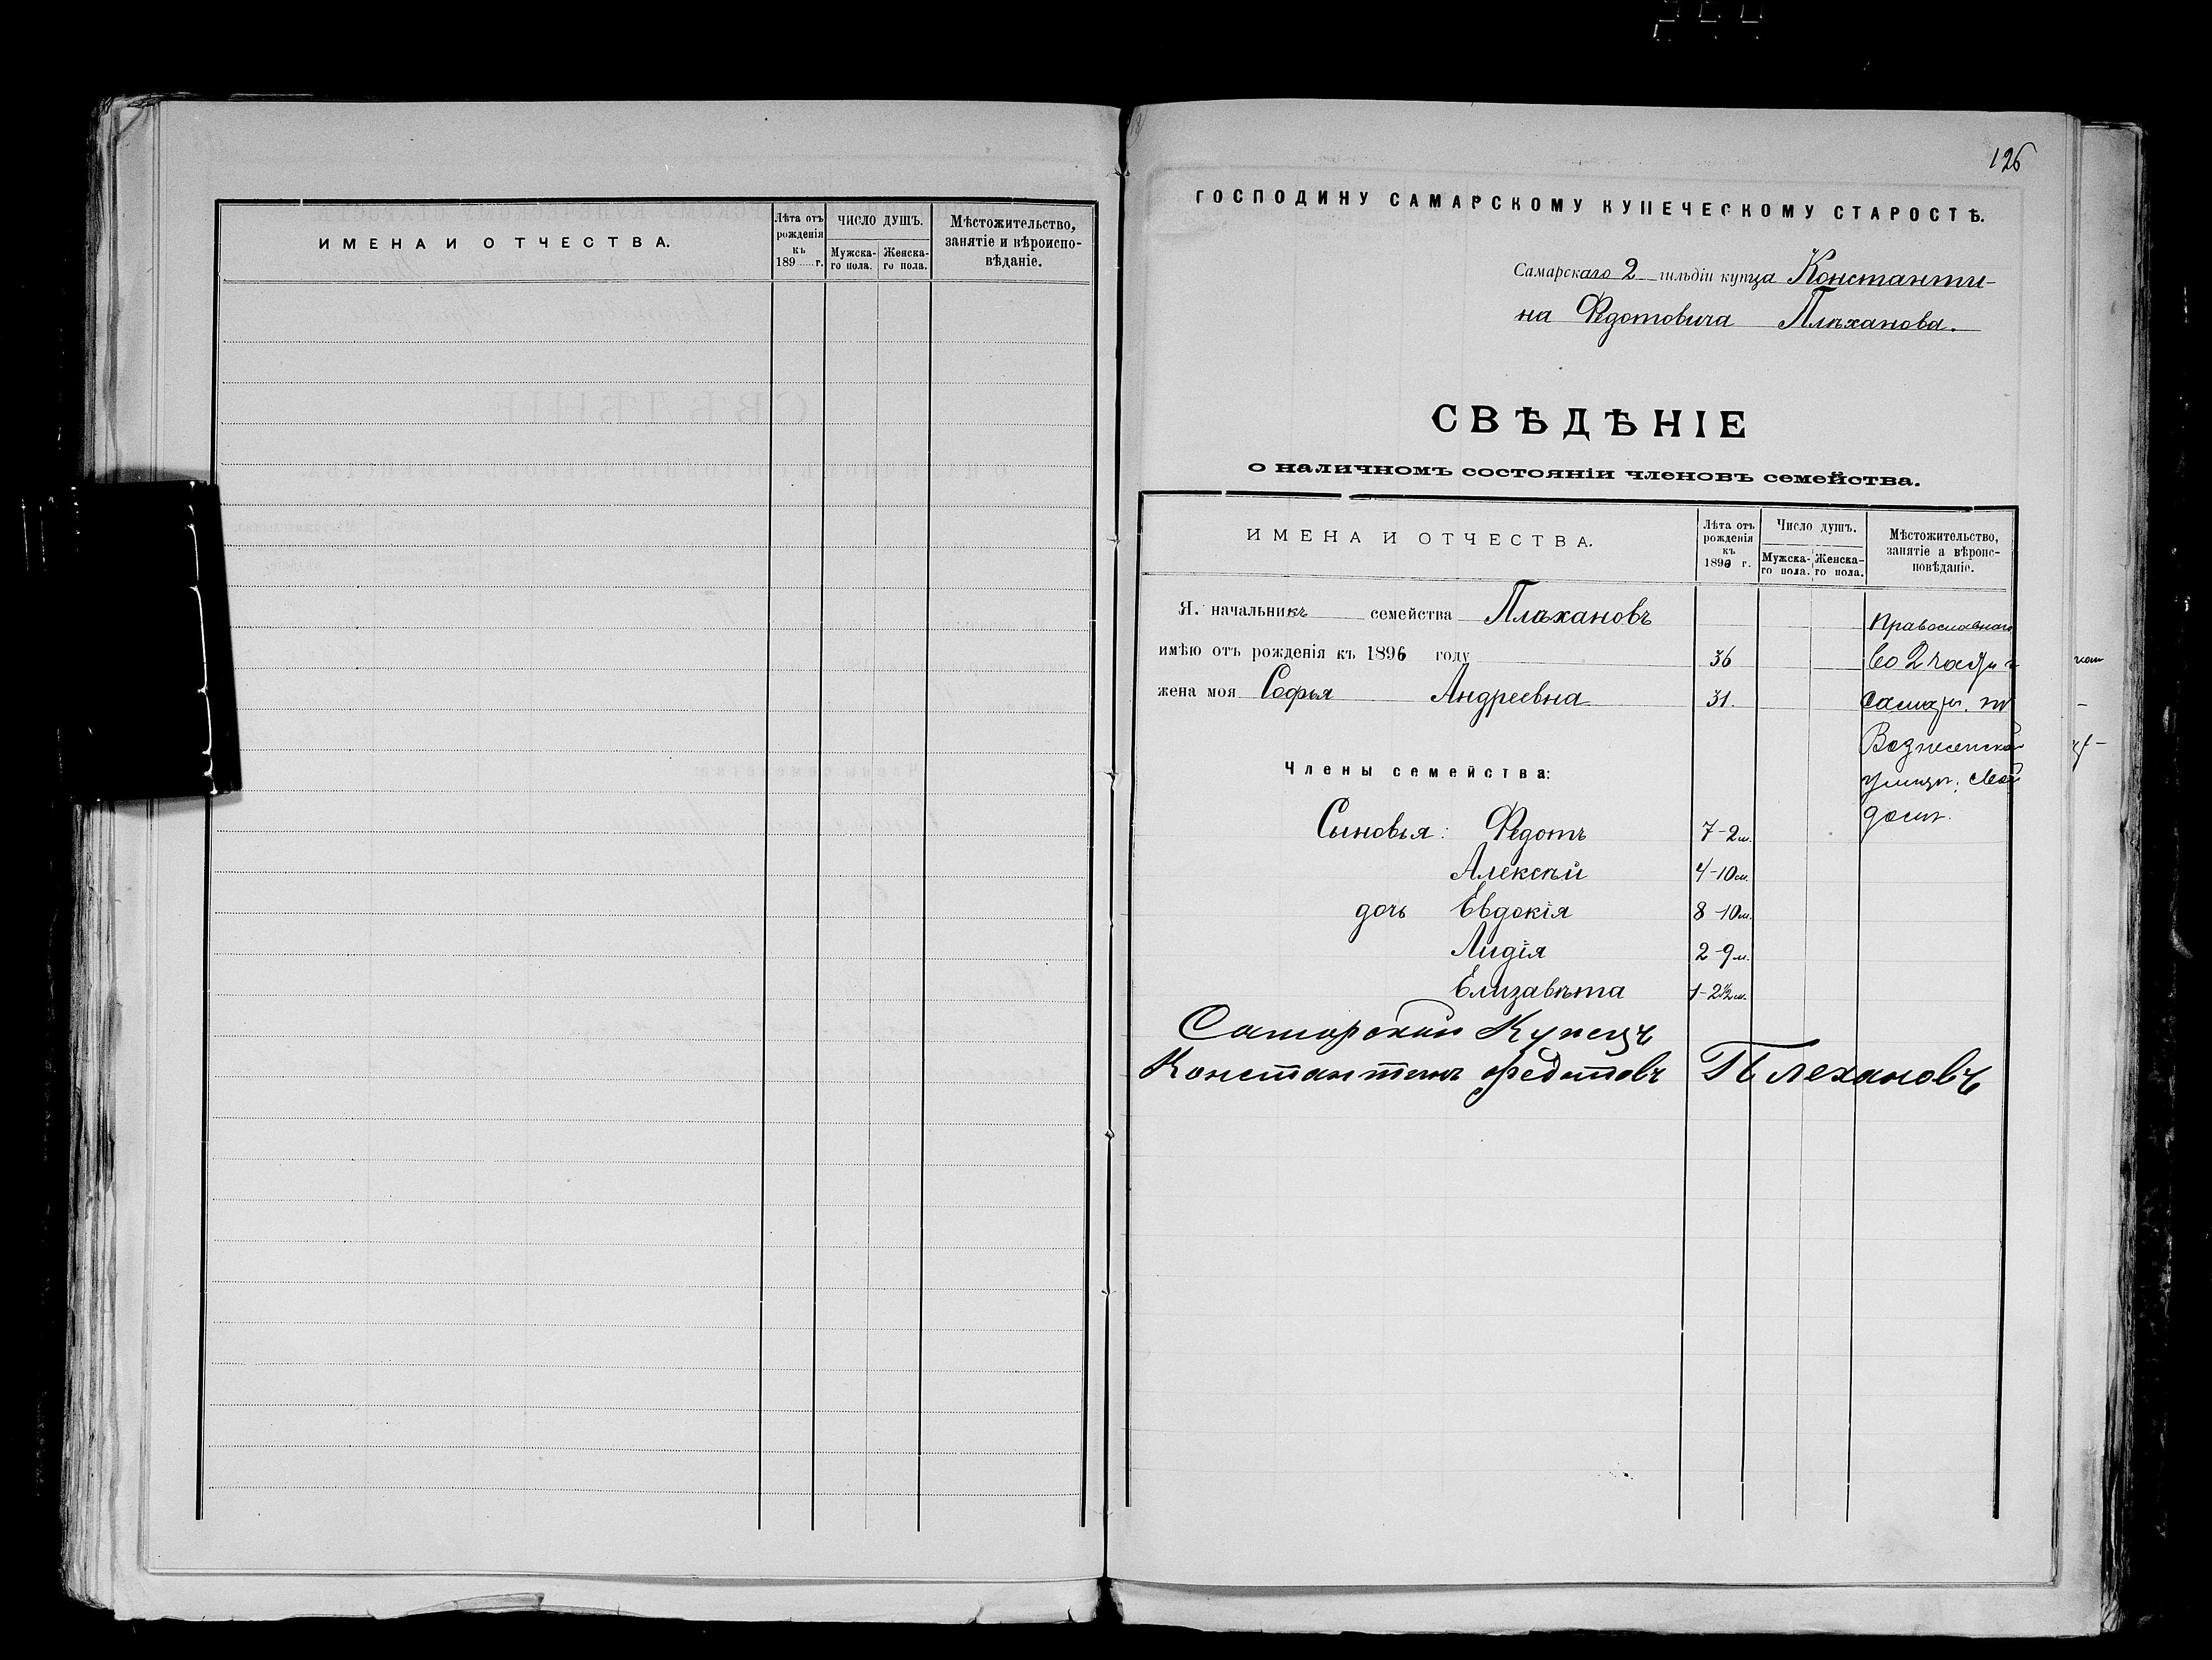 ИМЕНА И ОТЧЕСТВА.
Лѣта отъ рожденія къ 189 г.
ЧИСЛО ДУШЪ.
Мужска-го пола.
Женска-го пола.
Мѣстожительство, занятіе и вѣроиспо-вѣданіе.
126
ГОСПОДИНУ САМАРСКОМУ КУПЕЧЕСКОМУ СТАРОСТѢ.
Самарскаго 2 гильдіи купца Константи-
на Федотовича Плѣханова.
СВѢДѢНІЕ
о наличномъ состояніи членовъ семейства.
ИМЕНА И ОТЧЕСТВА.
Лѣта отъ рожденія къ 1896 г.
Число душъ.
Мужска-го пола.
Женска-го пола.
Мѣстожительство, занятіе а вѣроис-повѣданіе.
Я. начальникъ семейства Плѣхановъ
Православнаго
имѣю отъ рожденія къ 1896 году 36
Во 2 части г
жена моя Софья Андреевна 31.
Самары. по
Вознесенской
Члены семейства:
улицы; свой
домъ.
Сыновья: Федотъ 7-2м.
Алексѣй 4-10м.
дочь Евдокія 8-10м.
Лидія 2-9м.
Елизавѣта 1-2½м.
Самарскій Купецъ
Константинъ Федотовъ Плехановъ